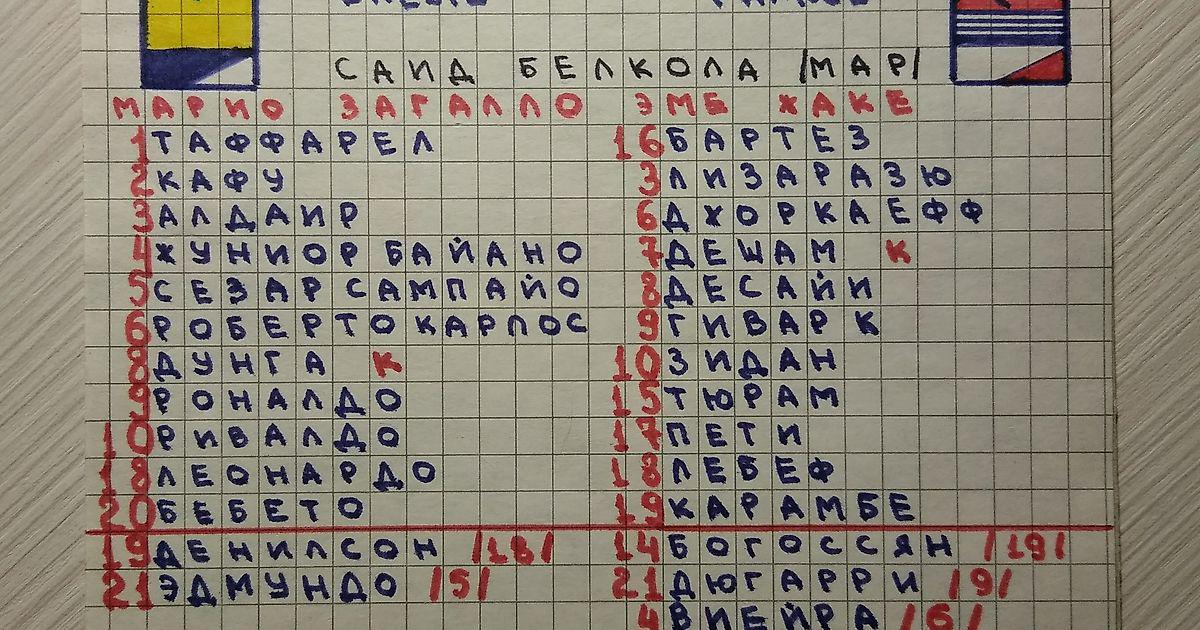 САИД БЕЛКОЛА /МАР/
МАРИО ЗАГАЛЛО ЭМЕ ЖАКЕ
1 ТАФФАРЕЛ 16 БАРТЕЗ
2 КАФУ 3 ЛИЗАРАЗЮ
3 АЛДАИР 6 ДЖОРКАЕФФ
4 ЖУНИОР БАЙАНО 7 ДЕШАМ К
5 СЕЗАР САМПАЙО 8 ДЕСАЙИ
6 РОБЕРТО КАРЛОС 9 ГИВАРК
8 ДУНГА К 10 ЗИДАН
9 РОНАЛДО 15 ТЮРАМ
10 РИВАЛДО 17 ПЕТИ
18 ЛЕОНАРДО 18 ЛЕБЕФ
20 БЕБЕТО 19 КАРАМБЕ
19 ДЕНИЛСОН /18/ 14 БОГОССЯН /19/
21 ЭДМУНДО /5/ 21 ДЮГАРРИ /9/
4 ВИЕЙРА /6/